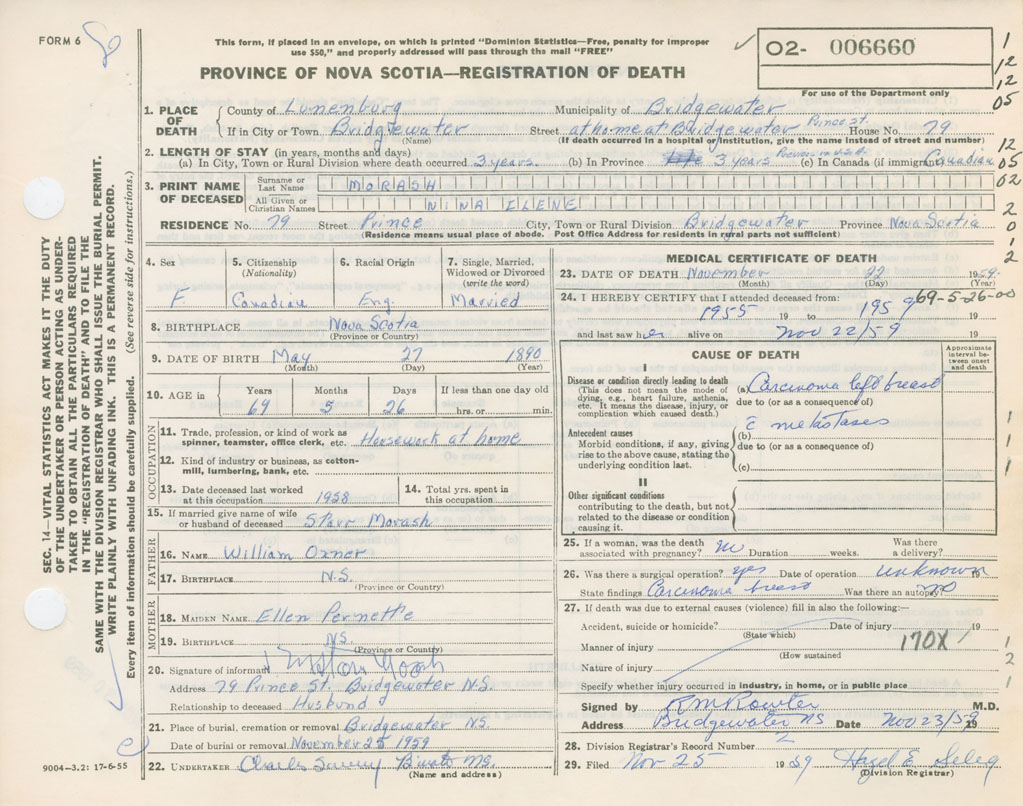 FORM 6
This form, if placed in an envelope, on which is printed "Dominion Statistics—Free, penalty for improper
use $50," and properly addressed will pass through the mail "FREE"
PROVINCE OF NOVA SCOTIA—REGISTRATION OF DEATH
02- 006660
For use of the Department only
1
12
12
05
12
05
02
2
0
1
2
SEC. 14—VITAL STATISTICS ACT MAKES IT THE DUTY
OF THE UNDERTAKER OR PERSON ACTING AS UNDER-
TAKER TO OBTAIN ALL THE PARTICULARS REQUIRED
IN THE "REGISTRATION OF DEATH" AND TO FILE THE
SAME WITH THE DIVISION REGISTRAR WHO SHALL ISSUE THE BURIAL PERMIT.
WRITE PLAINLY WITH UNFADING INK. THIS IS A PERMANENT RECORD.
Every item of information should be carefully supplied. (See reverse side for instructions.)
1. PLACE OF DEATH
County of Lunenburg Municipality of Bridgewater
If in City or Town Bridgewater Street at home at Bridgewater Prince St. House No. 79
(Name) (If death occurred in a hospital or institution, give the name instead of street and number)
2. LENGTH OF STAY (in years, months and days)
(a) In City, Town or Rural Division where death occurred 3 years. (b) In Province 3 years (c) In Canada (if immigrant) Canadian
3. PRINT NAME OF DECEASED
Surname or Last Name MORASH
All Given or Christian Names NINA ILENE
RESIDENCE No. 79 Street Prince City, Town or Rural Division Bridgewater Province Nova Scotia
(Residence means usual place of abode. Post Office Address for residents in rural parts not sufficient)
4. Sex F.
5. Citizenship (Nationality) Canadian
6. Racial Origin Eng.
7. Single, Married, Widowed or Divorced (write the word) Married
8. BIRTHPLACE Nova Scotia
(Province or Country)
9. DATE OF BIRTH May 27 1890
(Month) (Day) (Year)
10. AGE in Years Months Days If less than one day old
69 5 26 hrs. or min.
OCCUPATION
11. Trade, profession, or kind of work as
spinner, teamster, office clerk, etc. Housework at home
12. Kind of industry or business, as cotton-
mill, lumbering, bank, etc.
13. Date deceased last worked
at this occupation 1958
14. Total yrs. spent in
this occupation
15. If married give name of wife
or husband of deceased Starr Morash
FATHER
16. NAME William Oxner
17. BIRTHPLACE N.S.
(Province or Country)
MOTHER
18. MAIDEN NAME Ellen Pernette
19. BIRTHPLACE N.S.
(Province or Country)
20. Signature of informant
Address 79 Prince St. Bridgewater N.S.
Relationship to deceased Husbund
21. Place of burial, cremation or removal Bridgewater N.S.
Date of burial or removal November 25 1959
22. UNDERTAKER Charles
(Name and address)
9004-3.2: 17-6-55
MEDICAL CERTIFICATE OF DEATH
23. DATE OF DEATH November 22 1959.
(Month) (Day) (Year)
24. I HEREBY CERTIFY that I attended deceased from:
1955 19 to 1959 19
69-5-26-00
and last saw her alive on Nov 22/59 19
CAUSE OF DEATH
Approximate interval between onset and death
I
Disease or condition directly leading to death
(This does not mean the mode of
dying, e.g., heart failure, asthenia,
etc. It means the disease, injury, or
complication which caused death.)
(a) Carcinoma left breast
due to (or as a consequence of)
c metastases
Antecedent causes
Morbid conditions, if any, giving
rise to the above cause, stating the
underlying condition last.
(b)
due to (or as a consequence of)
(c)
II
Other significant conditions
contributing to the death, but not
related to the disease or condition
causing it.
1
1
1
25. If a woman, was the death
associated with pregnancy? no Duration weeks. Was there
a delivery?
26. Was there a surgical operation? yes Date of operation unknown 19
State findings Carcinoma breast Was there an autopsy? no
27. If death was due to external causes (violence) fill in also the following:—
Accident, suicide or homicide? Date of injury 19
(State which)
170X
Manner of injury
(How sustained
Nature of injury
Specify whether injury occurred in industry, in home, or in public place
1
2
1
Signed by M.D.
Address Bridgewater NS Date Nov 23/59 19
28. Division Registrar's Record Number 2
29. Filed Nov 25 1959 Hazel E. Seleg
(Division Registrar)